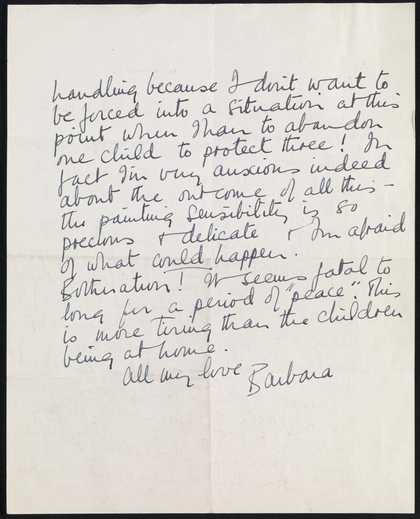 handling because I don't want to
be forced into a situation at this
point when I have to abandon
one child to protect three! In
fact I'm very anxious indeed
about the outcome of all this –
the painting sensibility is so
precious & delicate & I'm afraid
of what could happen.
Botheration! It seems fatal to
long for a period of "peace". This
is more tiring than the children
being at home.
All my love
Barbara